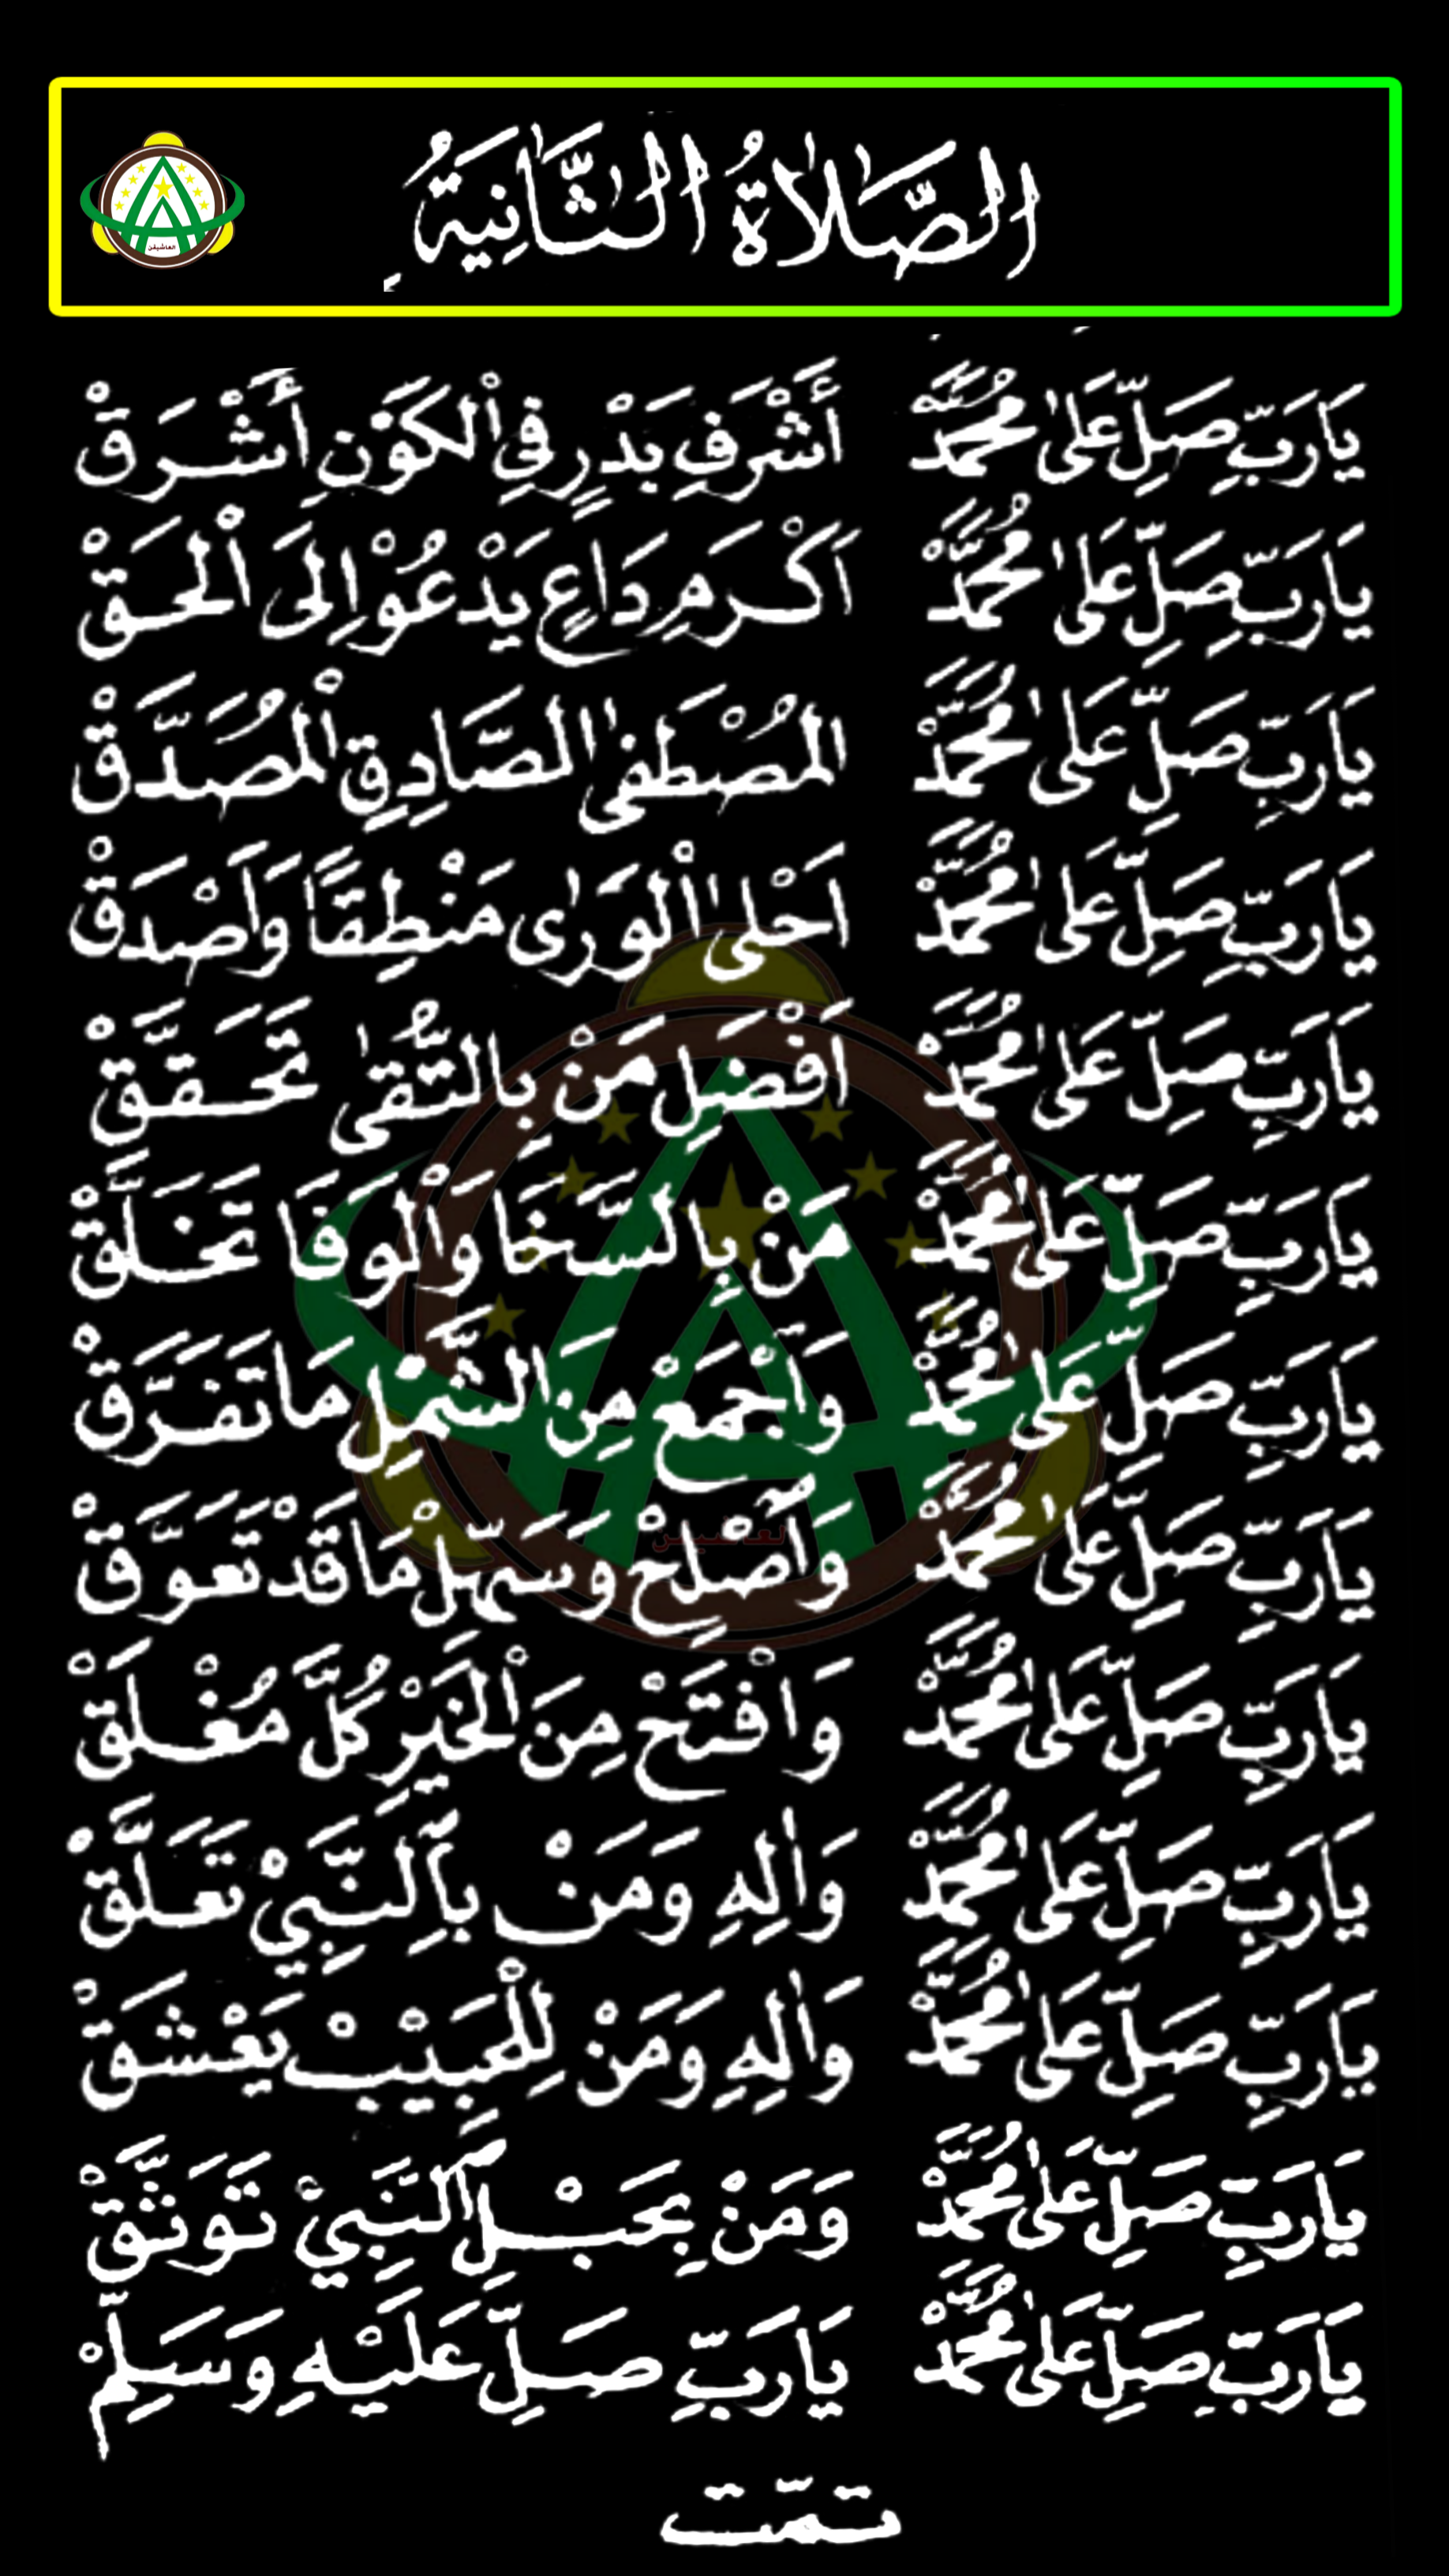 العاشيقن
الصَّلَاةُ الثَّانِيَةُ
يَارَبِّ صَلِّ عَلٰى مُحَمَّدْ أَشْرَفِ بَدْرٍ فِي الْكَوْنِ أَشْرَقْ
يَارَبِّ صَلِّ عَلٰى مُحَمَّدْ اَكْرَمِ دَاعٍ يَدْعُوْ اِلَى الْحَقْ
يَارَبِّ صَلِّ عَلٰى مُحَمَّدْ الْمُصْطَفٰى الصَّادِقِ الْمُصَدَّقْ
يَارَبِّ صَلِّ عَلٰى مُحَمَّدْ اَحْلٰى الْوَرٰى مَنْطِقًا وَاَصْدَقْ
يَارَبِّ صَلِّ عَلٰى مُحَمَّدْ اَفْضَلِ مَنْ بِالتُّقٰى تَحَقَّقْ
يَارَبِّ صَلِّ عَلٰى مُحَمَّدْ مَنْ بِالسَّخَا وَالْوَفَا تَخَلَّقْ
يَارَبِّ صَلِّ عَلٰى مُحَمَّدْ وَاَجْمَعْ مِنَ الشَّمْلِ مَا تَفَرَّقْ
يَارَبِّ صَلِّ عَلٰى مُحَمَّدْ وَاَصْلِحْ وَسَهِّلْ مَا قَدْ تَعَوَّقْ
يَارَبِّ صَلِّ عَلٰى مُحَمَّدْ وَافْتَحْ مِنَ الْخَيْرِ كُلَّ مُغْلَقْ
يَارَبِّ صَلِّ عَلٰى مُحَمَّدْ وَاٰلِهِ وَمَنْ بِالنَّبِيْ تَعَلَّقْ
يَارَبِّ صَلِّ عَلٰى مُحَمَّدْ وَاٰلِهِ وَمَنْ لِلْحَبِيْبْ يَعْشَقْ
يَارَبِّ صَلِّ عَلٰى مُحَمَّدْ وَمَنْ بِحَبْلِ النَّبِيْ تَوَثَّقْ
يَارَبِّ صَلِّ عَلٰى مُحَمَّدْ يَارَبِّ صَلِّ عَلَيْهِ وَسَلِّمْ
تمّت